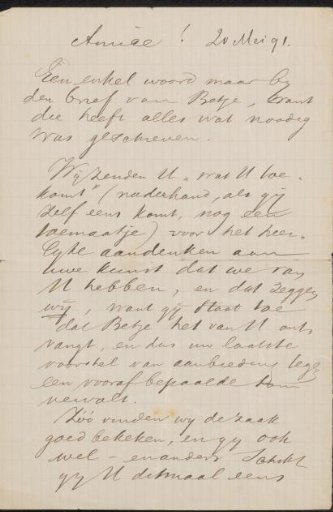 Amice! 20 Mei 91.
Een enkel woord maar bij
den brief van Betje, want
die heeft alles wat noodig
was geschreven.
Wij zenden U "wat U toe-
komt" (naderhand, als gij
zelf eens komt, nog een
toemaatje) voor het heer-
lijke aandenken aan
uwe kunst dat we van
U hebben, en dat zeggen
wij, want gij staat toe
dat Betje het van U ont-
vangt, en dus uw laatste
voorstel van aanbieding tegen
een vooraf bepaalde som
vervalt.
Zóó vinden wij de zaak
goed bekeken, en gij ook
wel – en anders schikt
gij U ditmaal eens